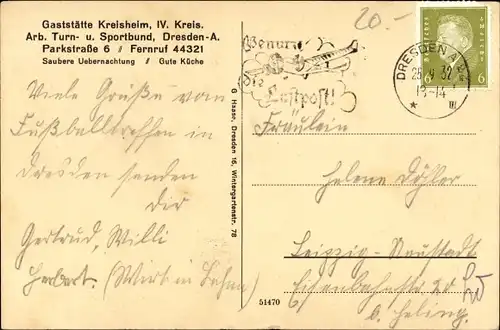 Gaststätte Kreisheim, IV. Kreis.
Arb. Turn- u. Sportbund, Dresden-A.
Parkstraße 6 // Fernruf 44321
Saubere Uebernachtung // Gute Küche
20.-
Benutzt
die
Luftpost!
DRESDEN A
25.4.32
13-14
* III
6
Viele Grüße vom
Fußballtreffen in
Dresden senden
Dir
Gertrud, Willi
Herbert (
G. Haase, Dresden 16, Wintergartenstr. 78
51470
Fräulein
Helene Döhler
Leipzig-Neustadt
Eisenbahnstr 20
b. Heling.